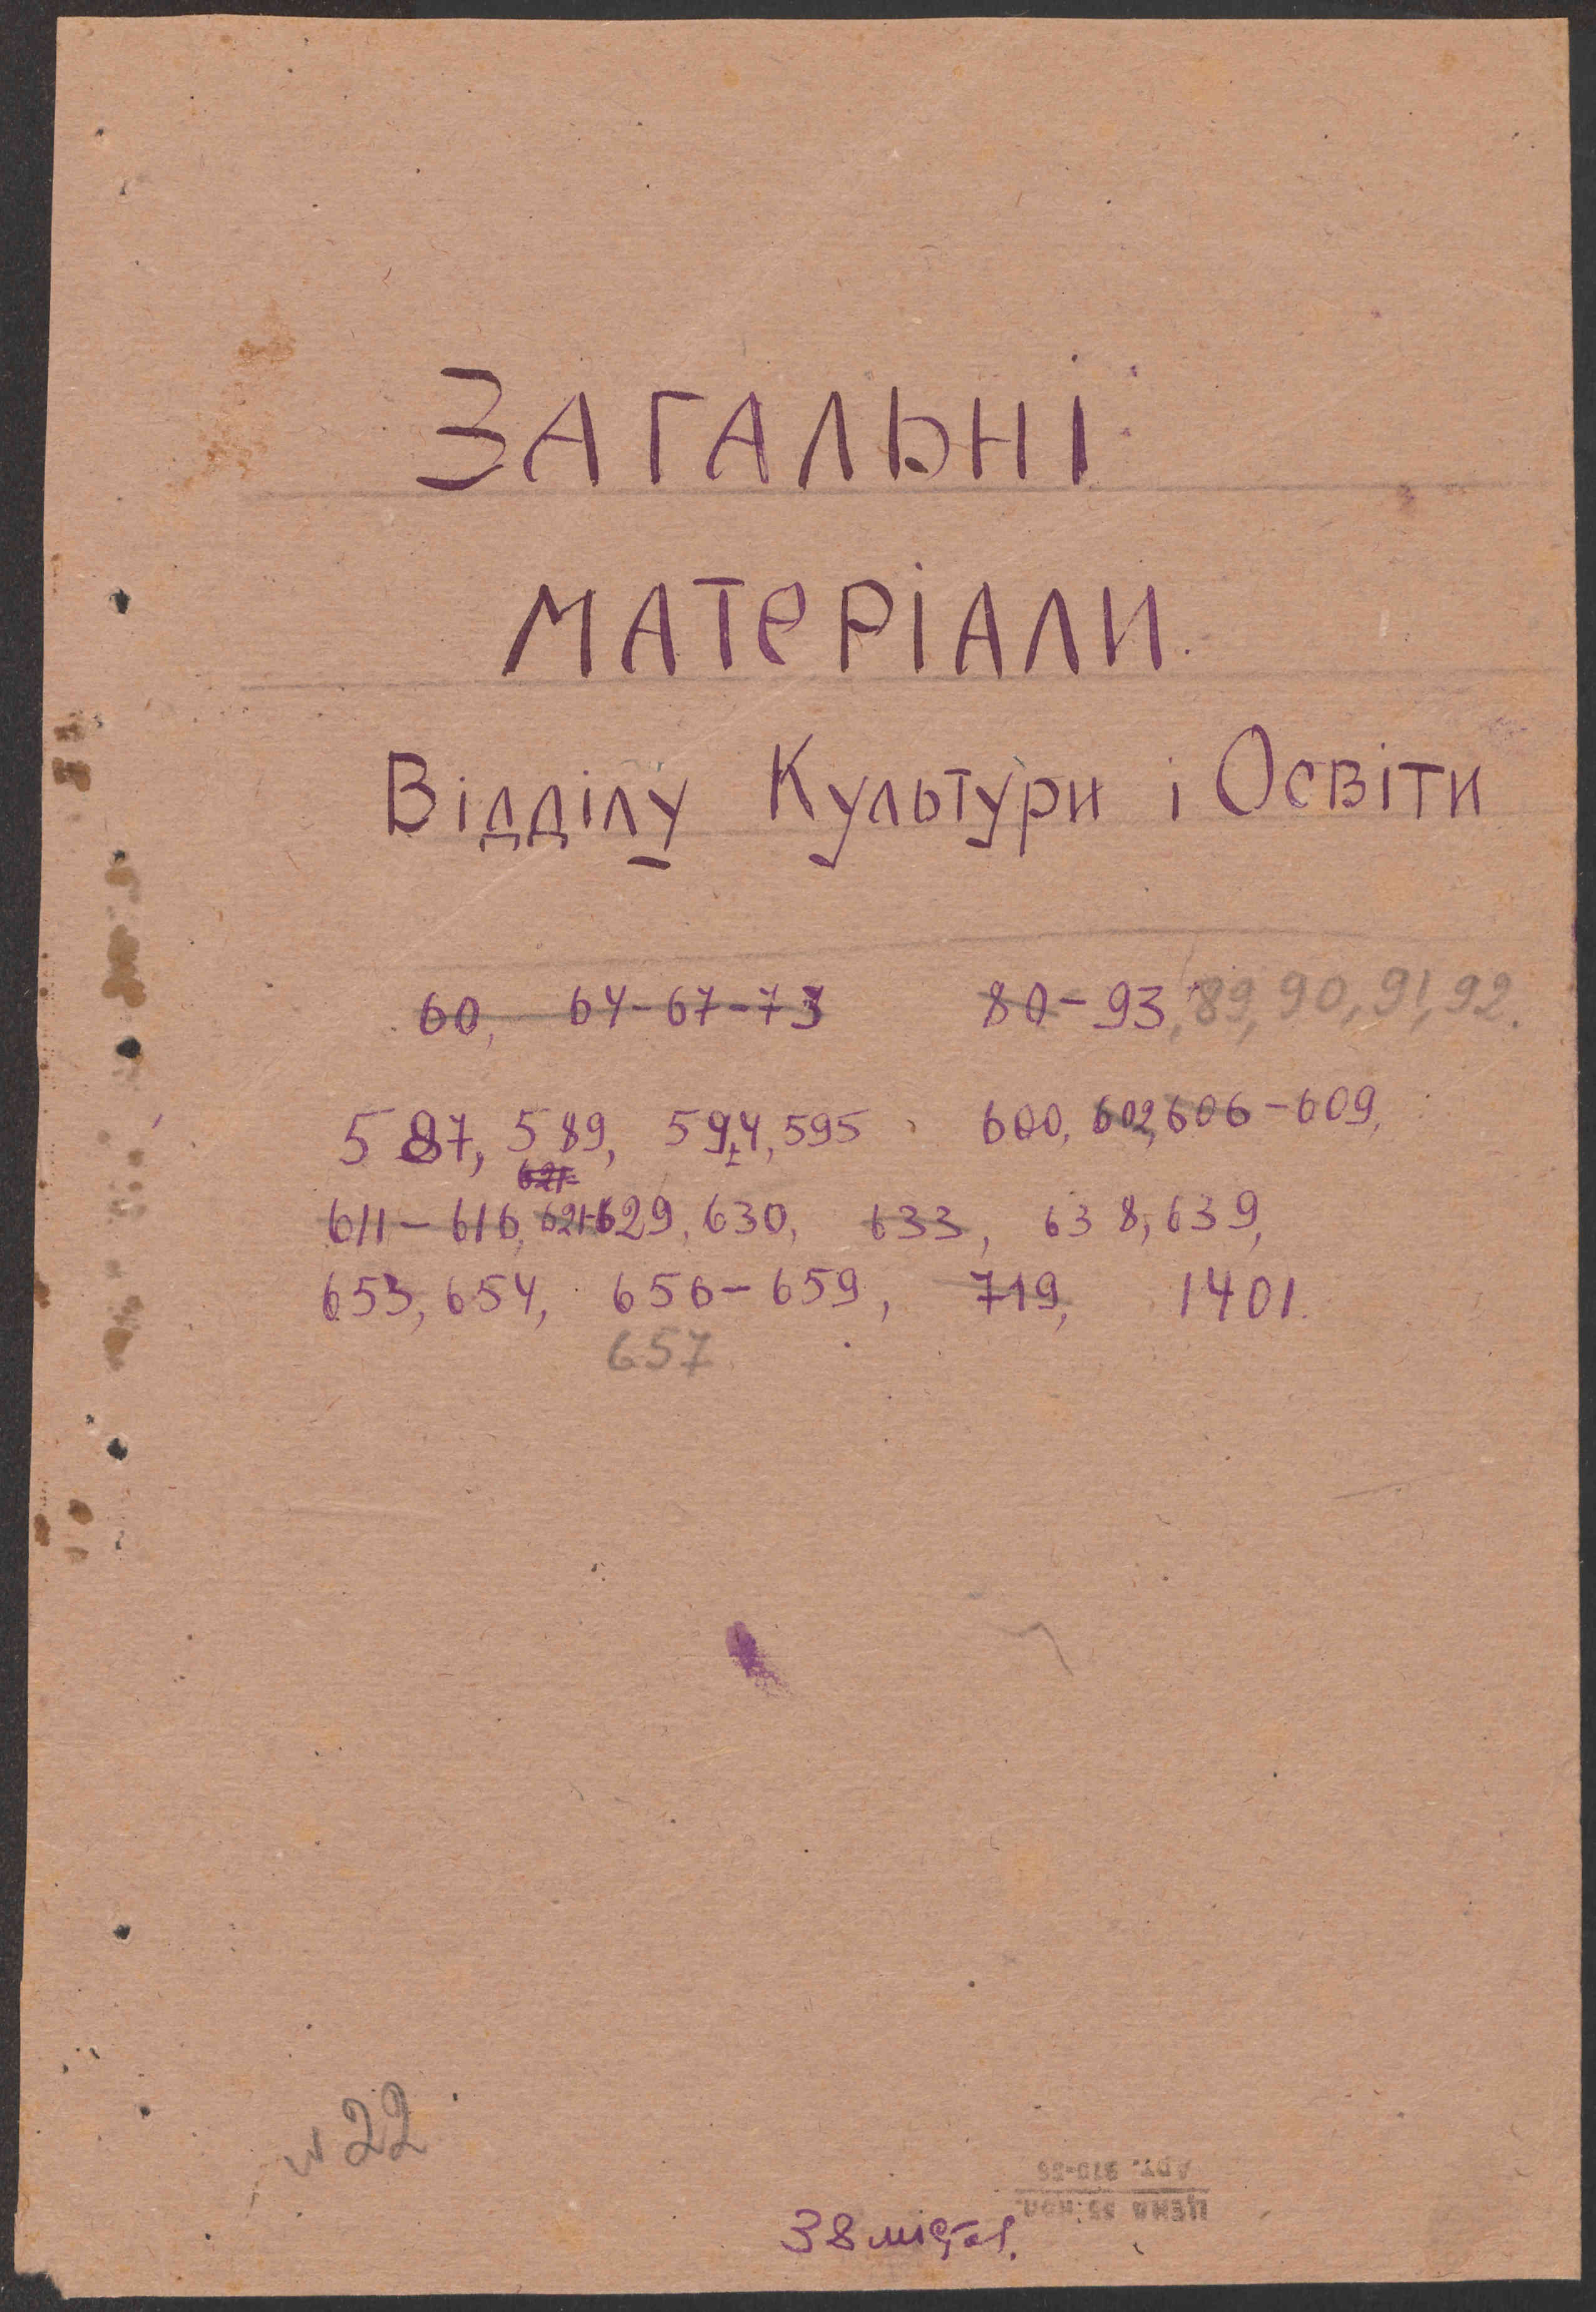 ЗАГАЛЬНІ
МАТЕРІАЛИ.
Відділу Культури і Освіти
60, 64-67-73 80-93, 89, 90, 91, 92.
587, 589, 594, 595 600, 602, 606-609,
621-
611-616, 621-629, 630, 633, 638, 639,
653, 654, 656-659, 719, 1401.
657
22
ЦЕНА 55 коп.
АРТ.
38